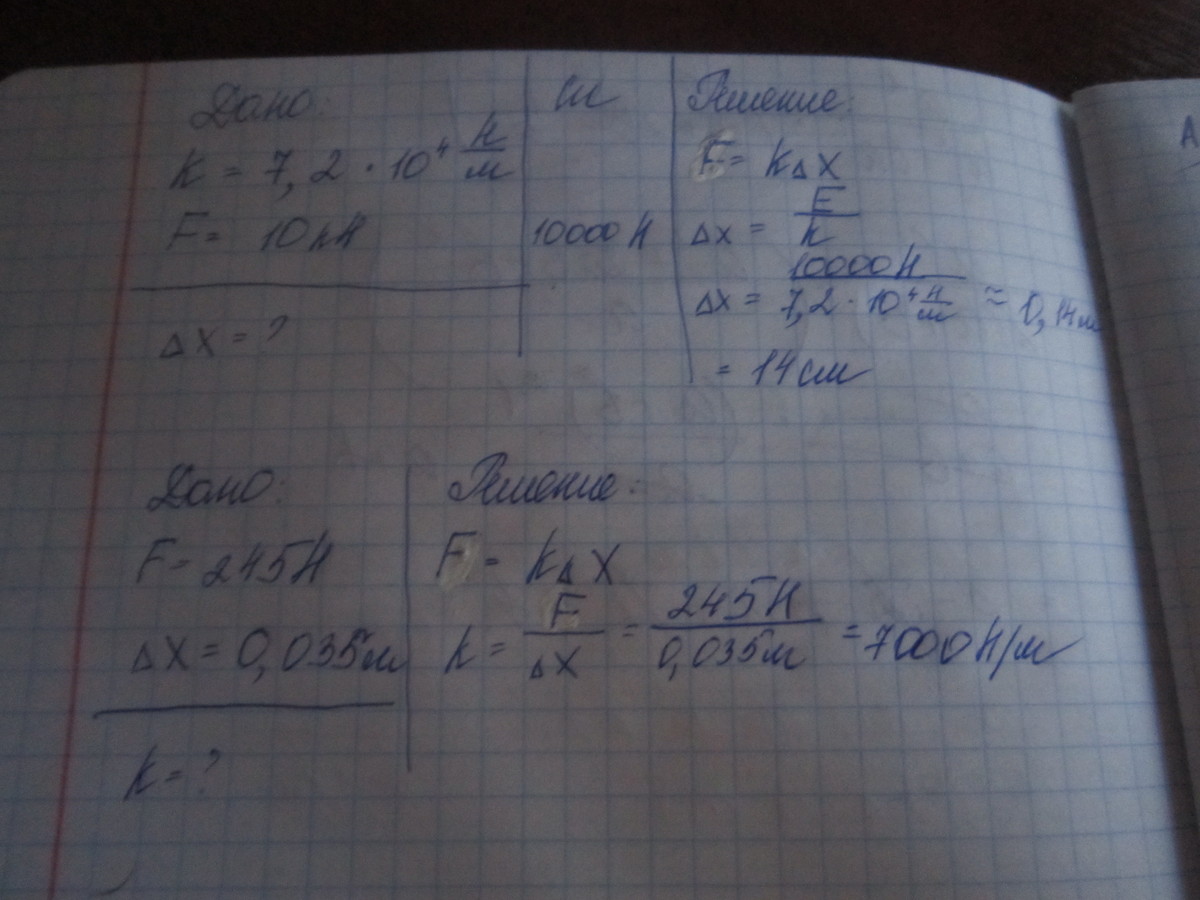 Дано:
K = 7,2 · 10⁴ Н/м
F = 10кН
Δx = ?
СИ
10000 Н
Решение:
F = KΔX
Δx = F/k
Δx = 10000Н / 7,2 · 10⁴ Н/м ≈ 0,14м
= 14см
Дано:
F = 245Н
Δx = 0,035м
k = ?
Решение:
F = KΔX
k = F/Δx = 245Н/0,035м = 7000Н/м
А